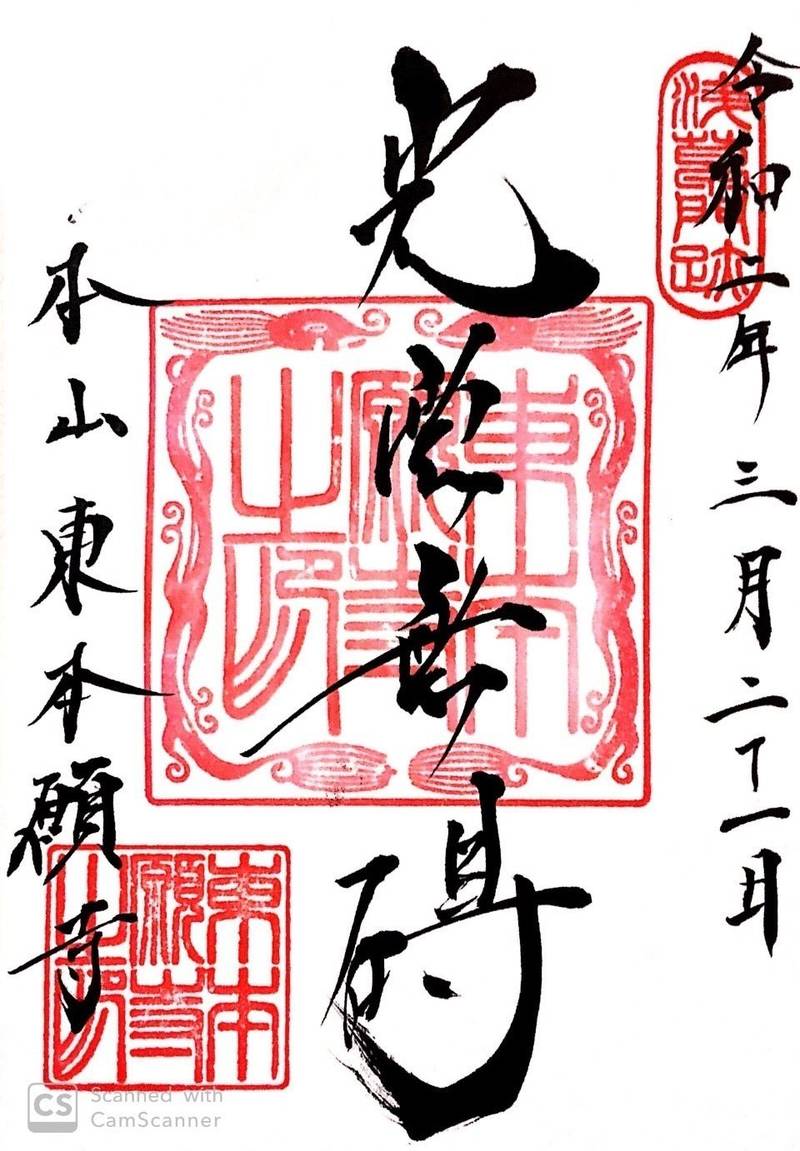 令和二年三月二十一日
淺草門跡
光雲無碍
東本
願寺
之印
本山東本願寺
東本
願寺
之印
CS Scanned with
CamScanner